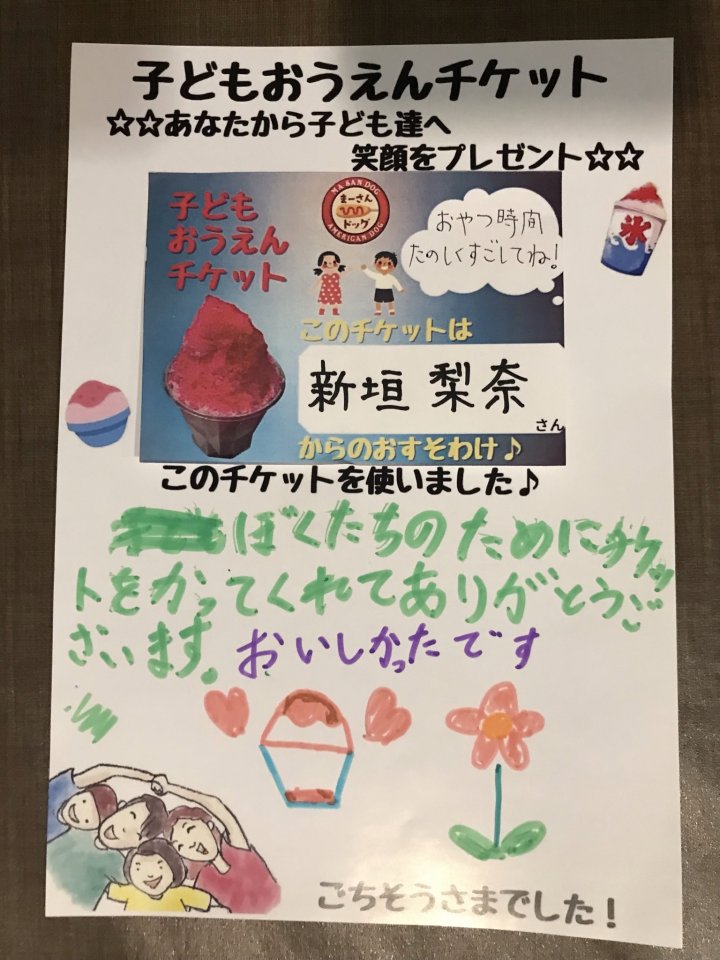 子どもおうえんチケット
☆☆あなたから子ども達へ
笑顔をプレゼント☆☆
子ども
おうえん
チケット
MA SAN DOG
まーさん
ドッグ
AMERICAN DOG
おやつ時間
たのしくすごしてね!
氷
このチケットは
新垣 梨奈
さん
からのおすそわけ♪
このチケットを使いました♪
ぼくたちのためにチケッ
トをかってくれてありがとうご
ざいます。おいしかったです
ごちそうさまでした!